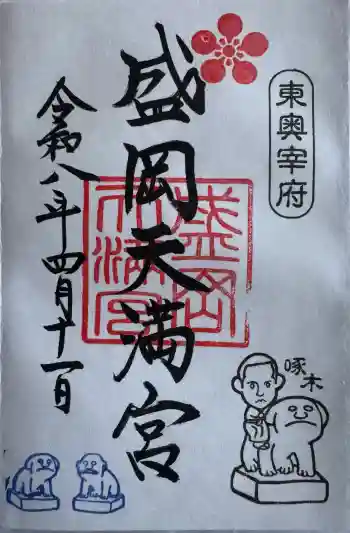 東奥宰府
盛岡天満宮
令和八年四月十一日
盛岡
天満宮
啄木